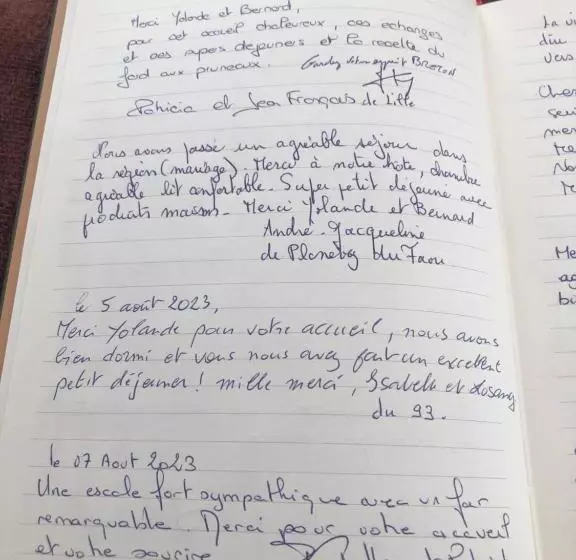 Merci Yolande et Bernard,
pour cet accueil chaleureux, ces echanges
et ces supers dejeuners et la recette du
fard aux pruneaux.
BREIZH
Patricia et Jean François de Lille
Nous avons passé un agréable séjour dans
la région (mariage). Merci à notre hôte, chambre
agréable lit confortable. Super petit déjeuné avec
produits maisons. Merci Yolande et Bernard
André. Jacqueline
de du Faou
le 5 août 2023,
Merci Yolande pour votre accueil, nous avons
bien dormi et vous nous avez fait un excellent
petit déjeuner ! mille merci, Isabelle et Losang
du 93.
le 07 Aout 2023
Une escale fort sympathique avec un far
remarquable. Merci pour votre accueil
et votre sourire
La vi
diu
vers
Cher
seu
mer
tra
No
Me
ag
bi